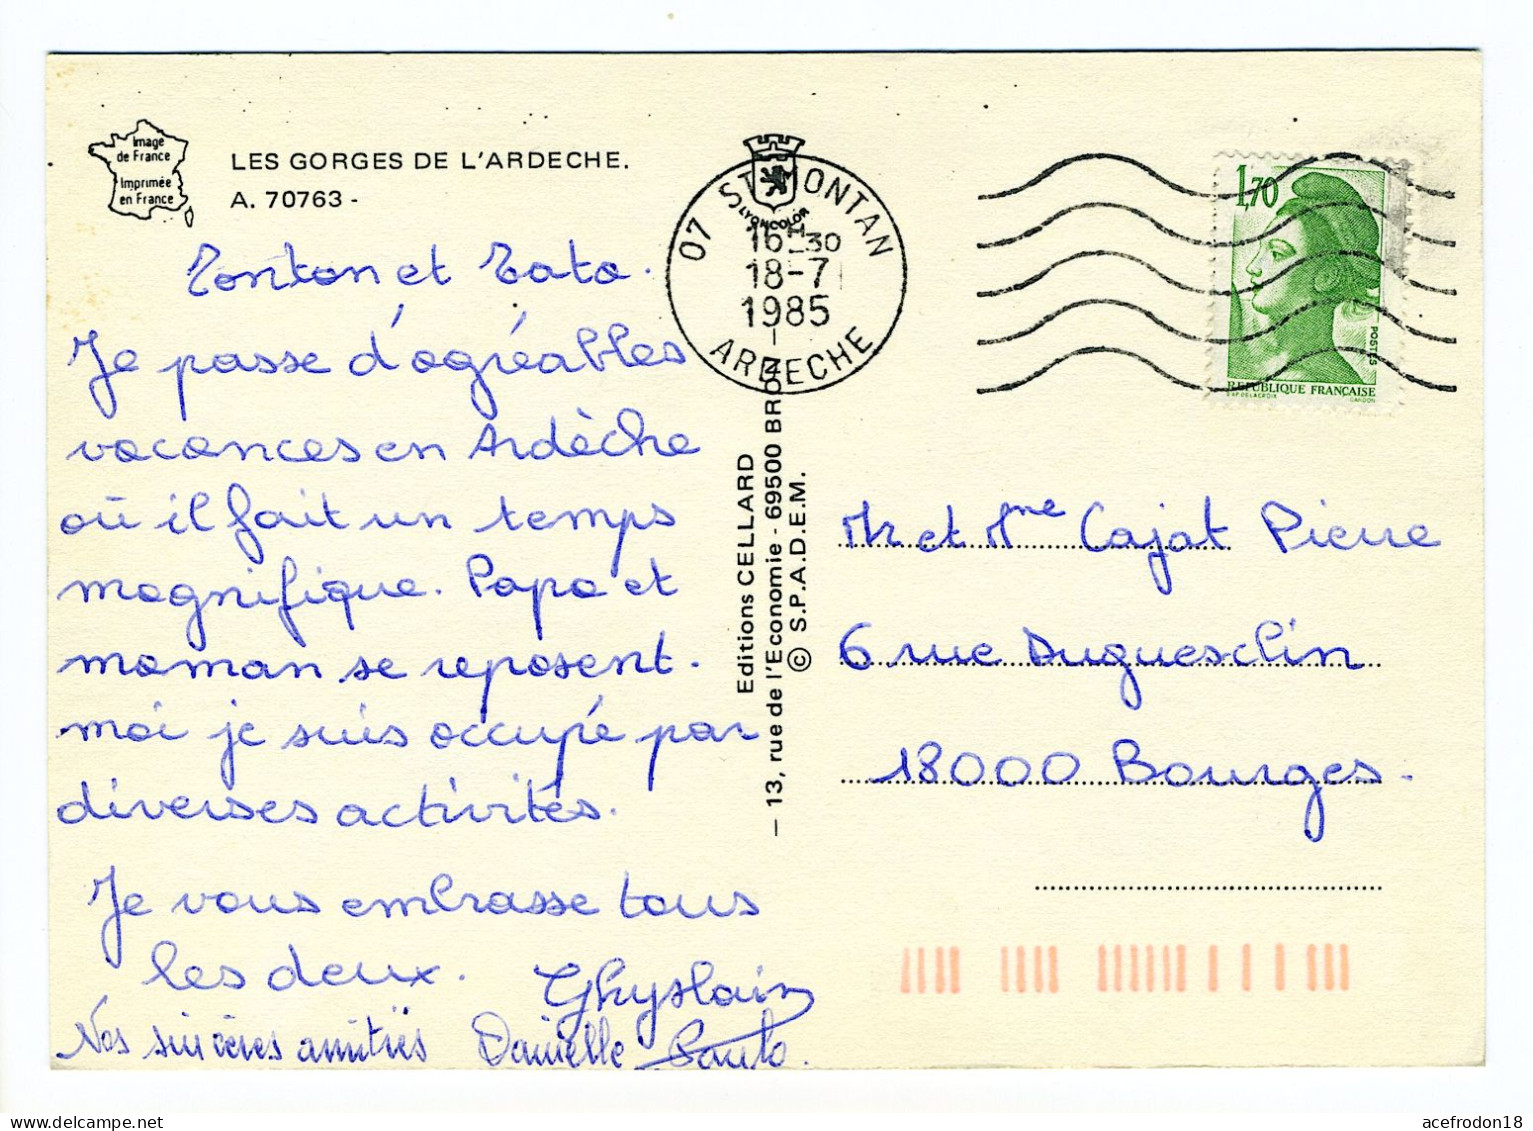 Image
de France
Imprimée
en France
LES GORGES DE L'ARDECHE.
A. 70763 -
Tonton et Tata.
Je passe d'agréables
vacances en Ardèche
où il fait un temps
magnifique. Papa et
maman se reposent.
moi je suis occupé par
diverses activités.
Je vous embrasse tous
les deux. Ghyslain
Nos sincères amitiés Danielle
Editions CELLARD
— 13, rue de l'Economie - 69500 BRON —
© S.P.A.D.E.M.
LYONCOLOR
07 ST MONTAN
16H30
18-7
1985
ARDECHE
1,70
POSTES
REPUBLIQUE FRANÇAISE
D'AP. DELACROIX GANDON
Mr et Mme Cajat Pierre
6 rue Duguesclin
18000 Bourges.
acefrodon18